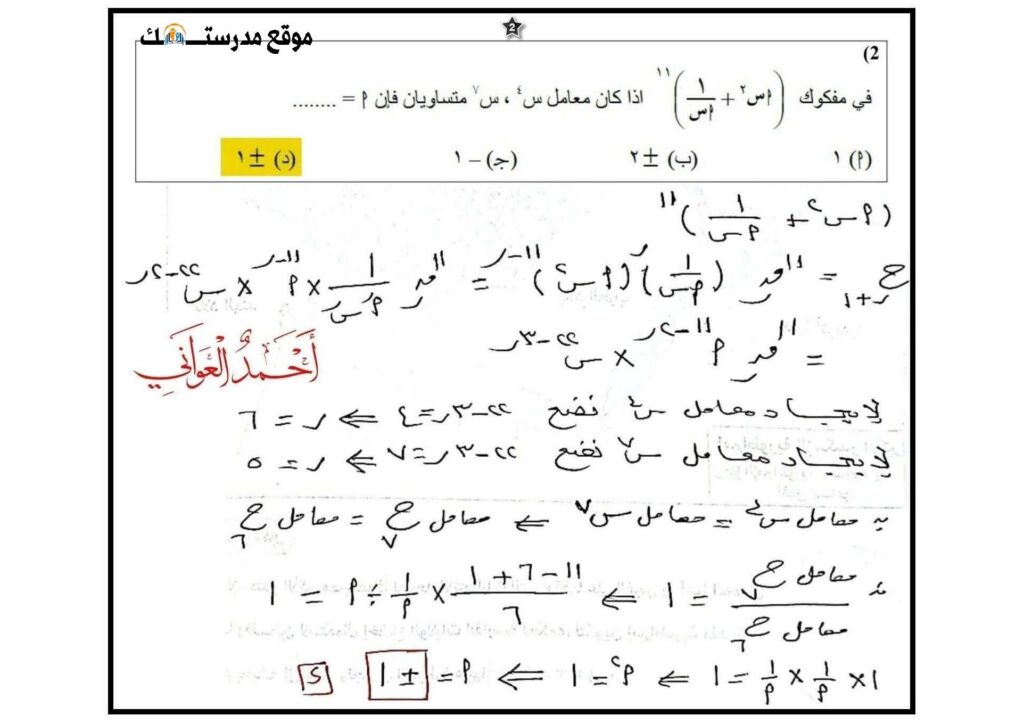 موقع مدرستـــك
2
2)
في مفكوك (أس² + ١/أس)¹¹ اذا كان معامل س⁴ ، س⁷ متساويان فإن أ = ........
(أ) ١ (ب) ± ٢ (جـ) – ١ (د) ± ١
(أس² + ١/أس)¹¹
ح ر+١ = ¹¹ق ر (١/أس)^ر (أس²)^(١١-ر) = ¹¹ق ر ١/(أ^ر س^ر) × أ^(١١-ر) × س^(٢٢-٢ر)
= ¹¹ق ر أ^(١١-٢ر) × س^(٢٢-٣ر)
أَحْمَدُ الْعَوَانِي
لإيجاد معامل س⁴ نضع ٢٢-٣ر=٤ ⇐ ر = ٦
لإيجاد معامل س⁷ نضع ٢٢-٣ر=٧ ⇐ ر = ٥
∵ معامل س⁴ = معامل س⁷ ⇐ معامل ح٧ = معامل ح٦
∴ معامل ح٧ / معامل ح٦ = ١ ⇐ (١١-٦+١)/٦ × ١/أ ÷ أ = ١
١ × ١/أ × ١/أ = ١ ⇐ أ² = ١ ⇐ أ = ± ١ د